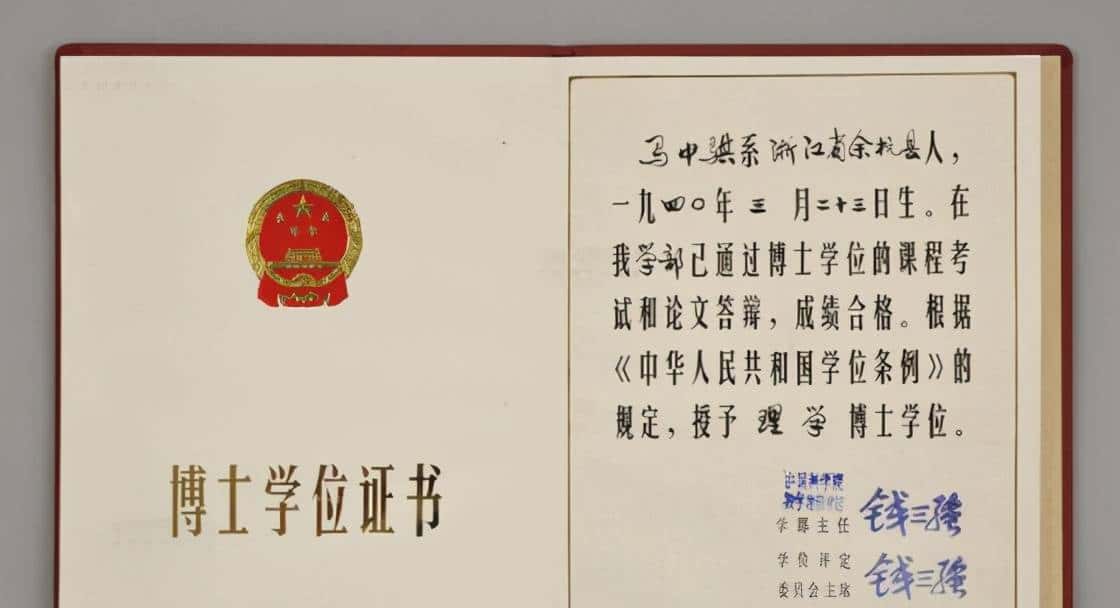 博士学位证书
马中骐系浙江省余杭县人，
一九四〇年三月二十三日生。在
我学部已通过博士学位的课程考
试和论文答辩，成绩合格。根据
《中华人民共和国学位条例》的
规定，授予理学博士学位。
中国科学院
学部主任 钱三强
学位评定
委员会主席 钱三强